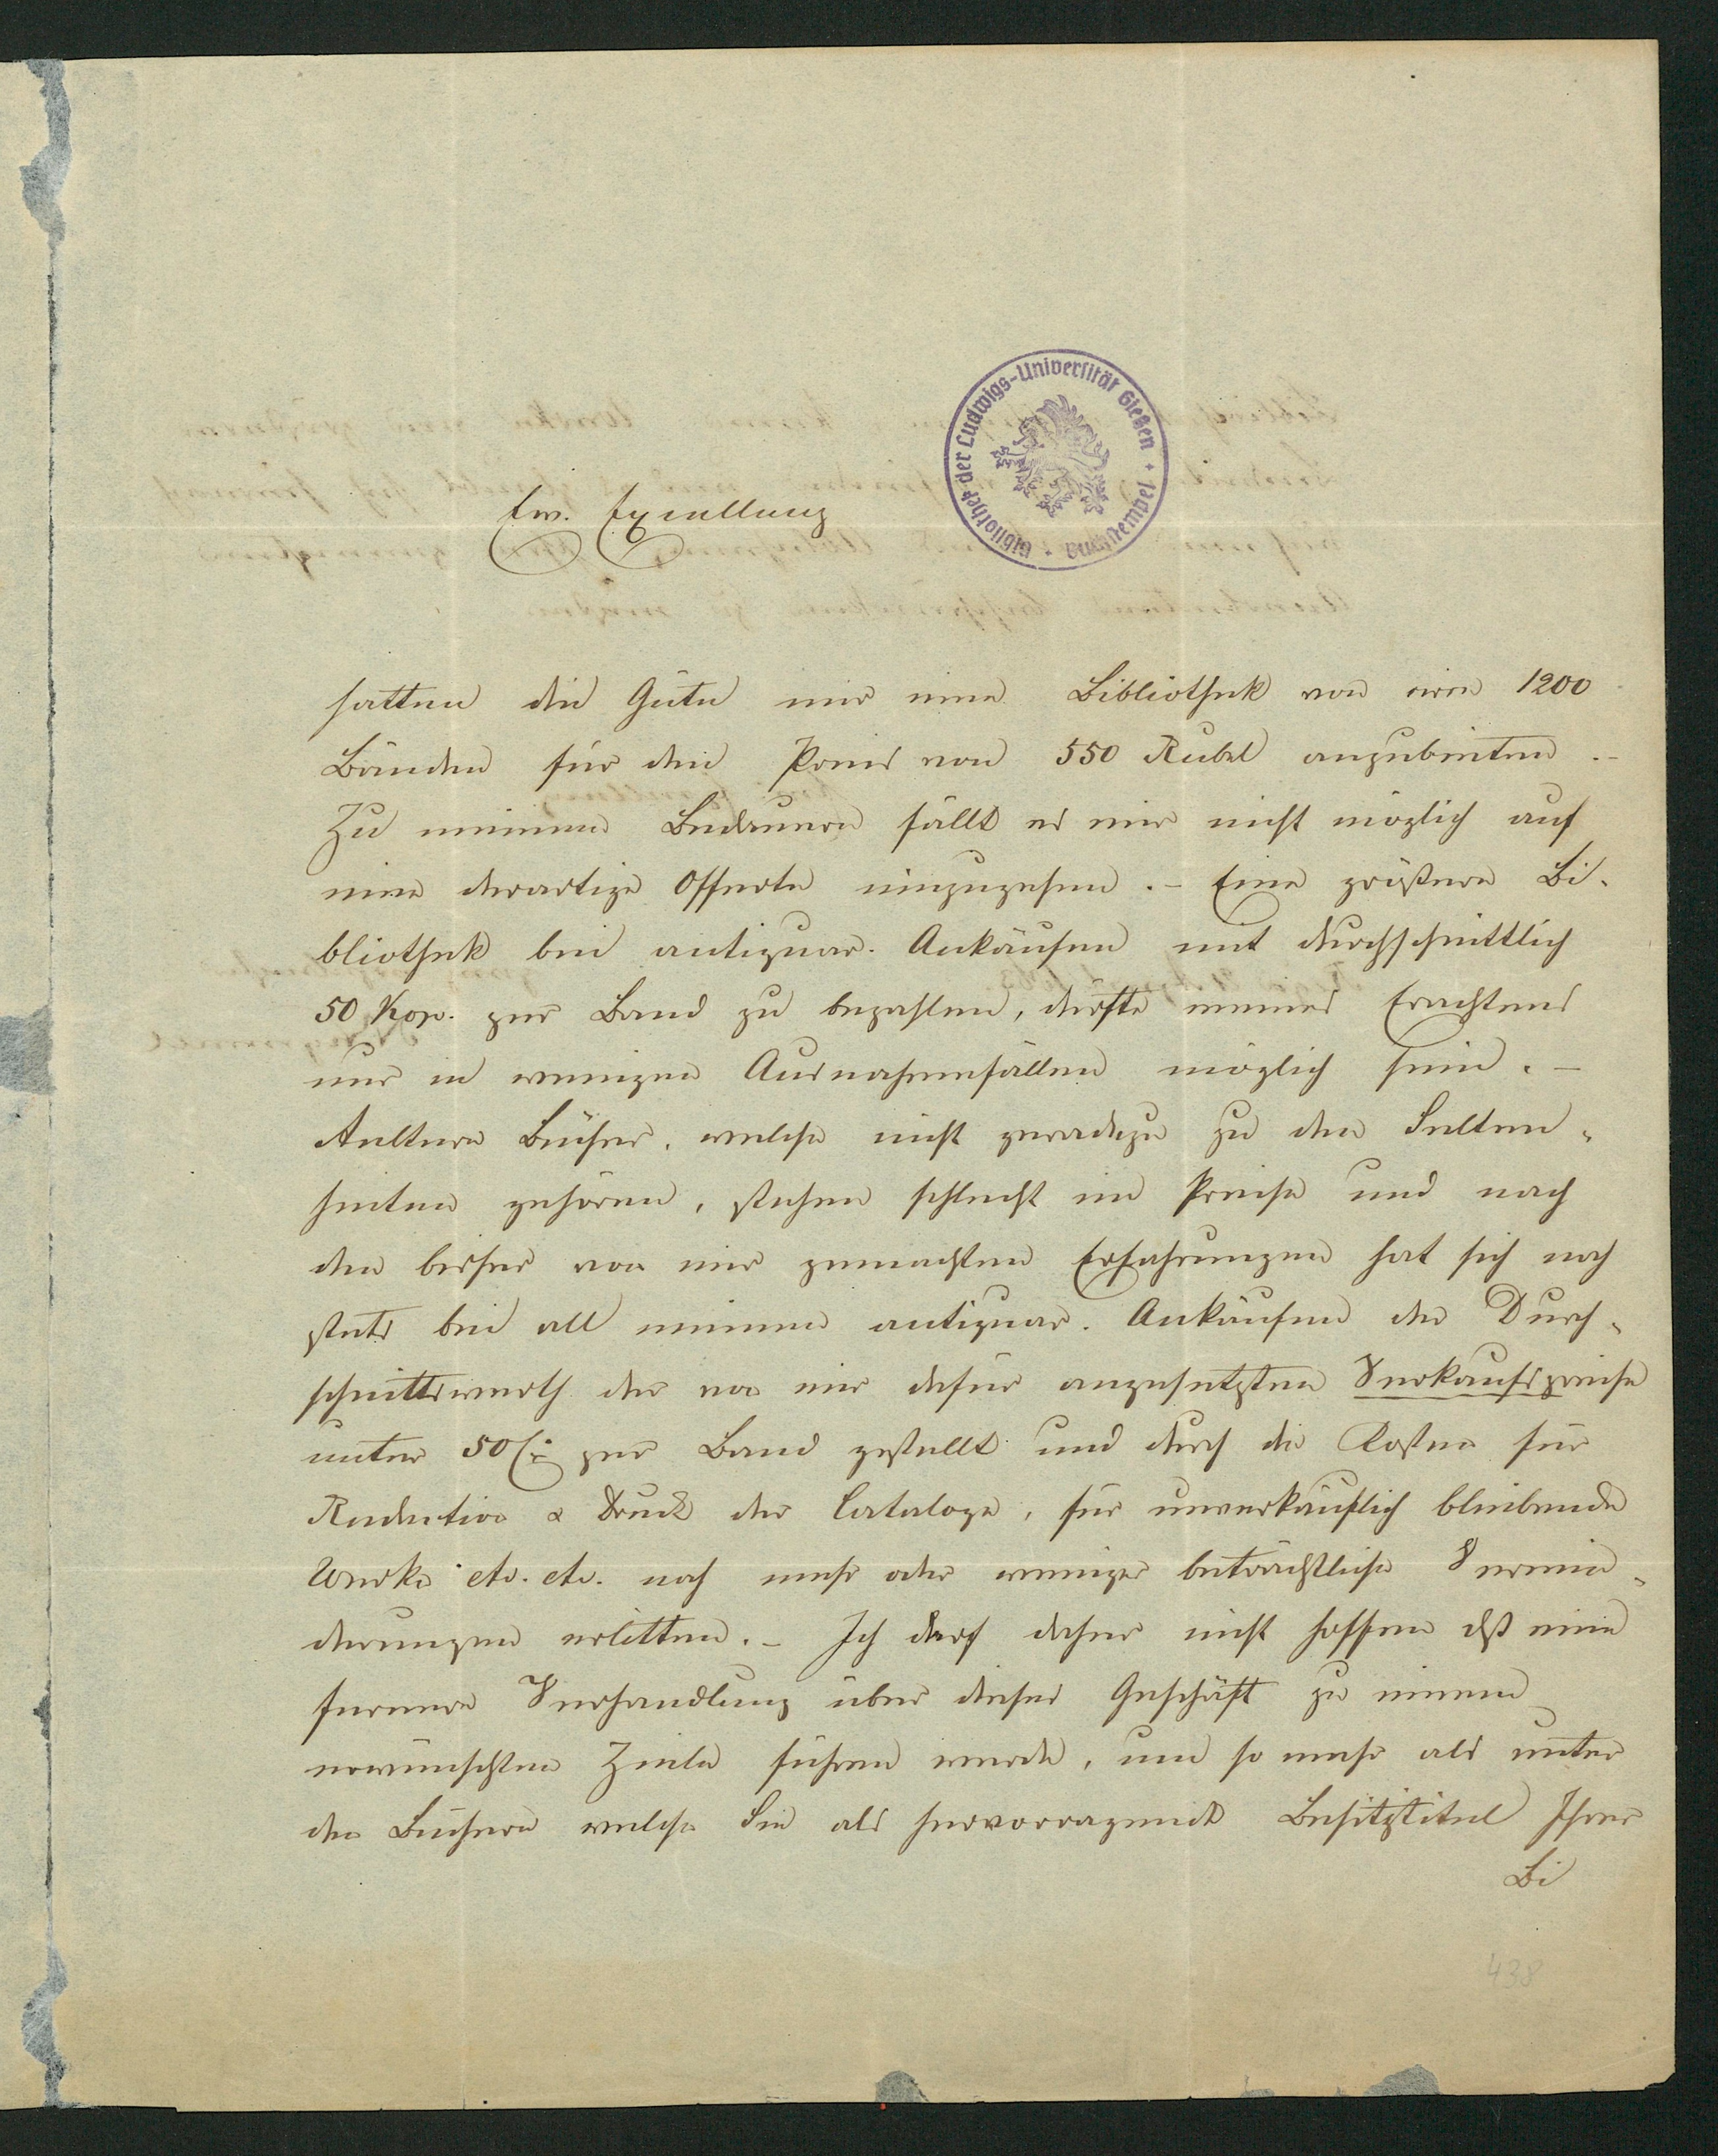 Bibliothek der Ludwigs-Universität Gießen + Buchstempel +
Ew. Excellenz
hatten die Güte mir eine Bibliothek von circa 1200
Bänden für den Preis von 550 Rubel anzubieten.–
Zu meinem Bedauern fällt es mir nicht möglich auf
eine derartige Offerte einzugehen.– Eine größere Bi-
bliothek bei antiquar. Ankäufen mit durchschnittlich
50 Kop. per Band zu bezahlen, dürfte meines Erachtens
nur in wenigen Ausnahmefällen möglich sein.–
Aeltere Bücher, welche nicht geradezu zu den Selten-
heiten gehören, stehen schlecht im Preise und nach
den bisher von mir gemachten Erfahrungen hat sich noch
stets bei all meinen antiquar. Ankäufen der Durch-
schnittswerth der von mir dafür angesetzten Verkaufspreise
unter 50 per Band gestellt und durch die Kosten für
Redaction & Druck der Cataloge, für unverkäuflich bleibende
Werke etc. etc. noch mehr oder weniger beträchtliche Vermin-
derungen erlitten.– Ich darf daher nicht hoffen dß eine
fernere Verhandlung über dieses Geschäft zu einem
erwünschten Ziele führen werde, um so mehr als unter
den Büchern welche Sie als hervorragende Besitztitel Ihrer
Bi
438